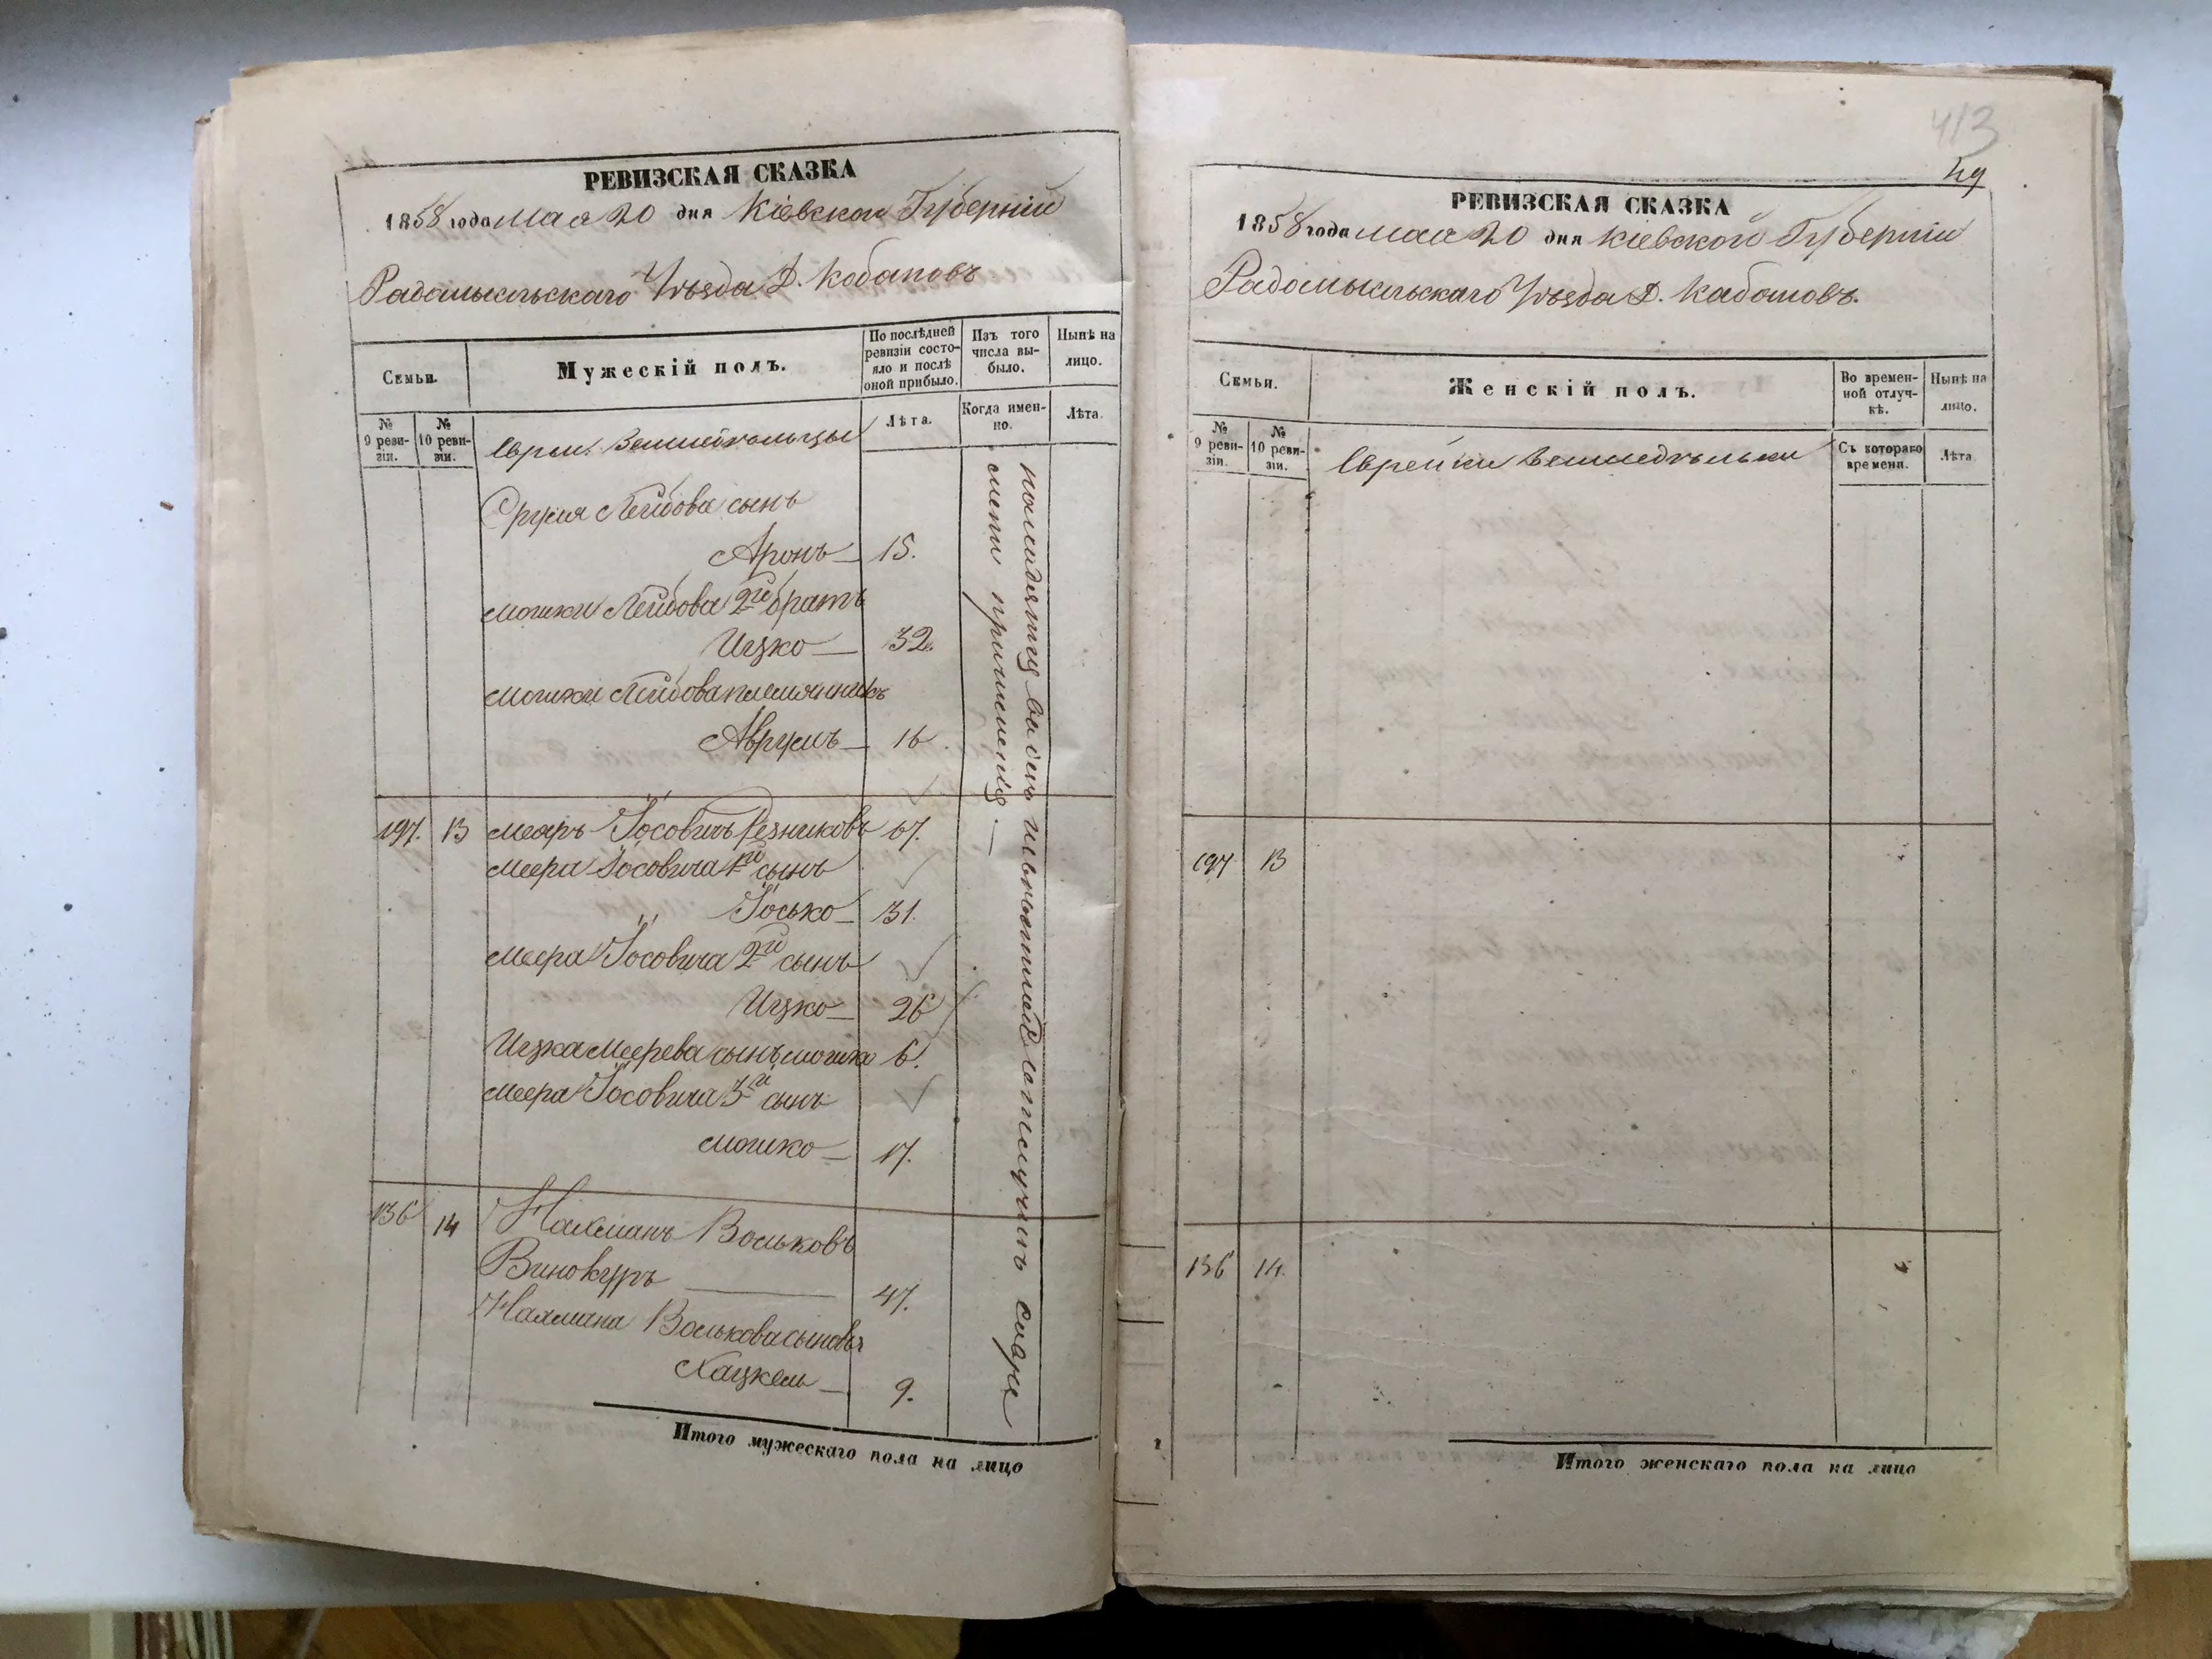 РЕВИЗСКАЯ СКАЗКА
1858 года мая 20 дня Кіевской Губерніи
Радомысльскаго Уѣзда Д. Кобановъ
Семьи.
Мужескій полъ.
По послѣдней ревизіи состояло и послѣ оной прибыло.
Изъ того числа выбыло.
Нынѣ на лицо.
№ 9 ревизіи.
№ 10 ревизіи.
Евреи Земледельцы
Лѣта.
Когда именно.
Лѣта.
Сруля Лейбова сынъ
Аронъ 15.
Мошки Лейбова 2й братъ
Ицко 32.
Мошки Лейбова племянникъ
Аврумъ 16.
197. 13 Меаръ Іосовичъ Резниковъ 67.
Меера Іосовича 1й сынъ
Іосько 31.
Меера Іосовича 2й сынъ
Ицко 26
Ицка Меерева сынъ Мошко 6.
Меера Іосовича 3й сынъ
Мошко 17.
136 14 Нахманъ Вольковъ
Винокуръ 47.
Нахмана Волькова сыновья
Хацкель 9.
Итого мужескаго пола на лицо
413
49
РЕВИЗСКАЯ СКАЗКА
1858 года мая 20 дня Кіевской Губерніи
Радомысльскаго Уѣзда Д. Кабановъ.
Семьи.
Женскій полъ.
Во временной отлучкѣ.
Нынѣ на лицо.
№ 9 ревизіи.
№ 10 ревизіи.
Еврейки Земледѣльки
Съ котораго времени.
Лѣта
197 13
136 14.
Итого женскаго пола на лицо